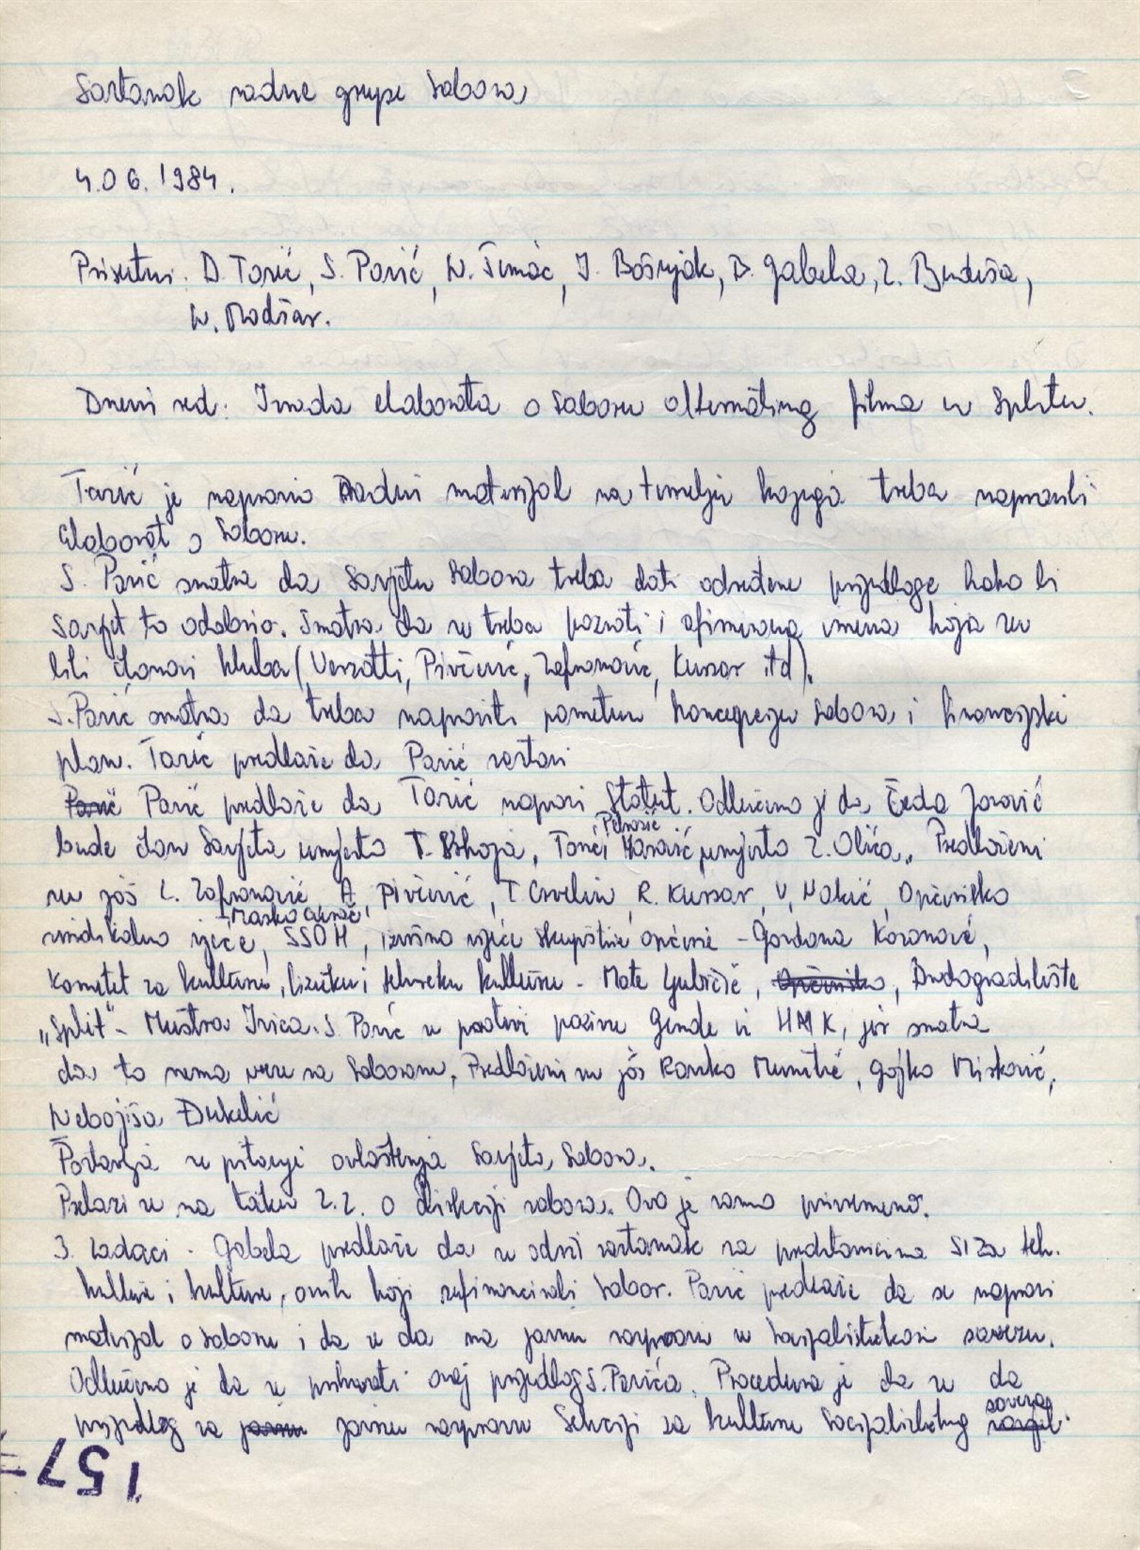 Sastanak radne grupe Sabora
4.06.1984.
Prisutni: D. Tarić, S. Parić, N. Šimac, J. Bošnjak, B. Gabela, Z. Budiša,
N. Modžar.
Dnevni red: Izrada elaborata o Saboru alternativnog filma u Splitu.
Tarić je napravio Radni materijal na temelju kojega treba napraviti
elaborat o Saboru.
S. Parić smatra da Savjetu Sabora treba dati određene prijedloge kako bi
Savjet to odobrio. Smatra da se treba pozvati i afirmirana imena koja su
bili članovi kluba (Verzotti, Pivčević, Zafranović, Kursar itd).
S. Parić smatra da treba napraviti pametnu koncepciju Sabora i financijski
plan. Tarić predlaže da Parić sastavi
Parić Parić predlaže da Tarić napravi Statut. Odlučeno je da Čedo Jarović
bude član Savjeta umjesto T. , Tonči Petrasić umjesto Z. Olića. Predloženi
su još L. Zafranović, A. Pivčević, T. Crvelin, R. Kursar, V. Nakić, Općinsko
sindikalno vijeće, Maško SSOH, izvršno vijeće skupštine općine - Gordana Koranović,
Komitet za kulturu, fizičku i tehničku kulturu - Mate Ljubičić, Općinsko, Brodogradilište
„Split" - Muštra Ivica. S. Parić se protivi pozivu Gende iz HMK, jer smatra
da to nema veze na Saborom. Predloženi su još Ranko Munitić, Gojko Mišković,
Nebojša Đukelić
Postavlja se pitanje ovlaštenja Savjeta Sabora.
Prelazi se na točku 2.2. o direkciji sabora. Ovo je samo privremeno.
3. Zadaci - Gabela predlaže da se održi sastanak sa predstavnicima SIZa teh.
kulture i kulture, onih koji sufinancirali Sabor. Parić predlaže da se napravi
materijal o Saboru i da se da na javnu raspravu u Socijalističkom savezu.
Odlučeno je da se prihvati ovaj prijedlog S. Parića. Procedura je da se da
prijedlog za javnu javnu raspravu Sekciji za kulturu Socijalističkog saveza
157